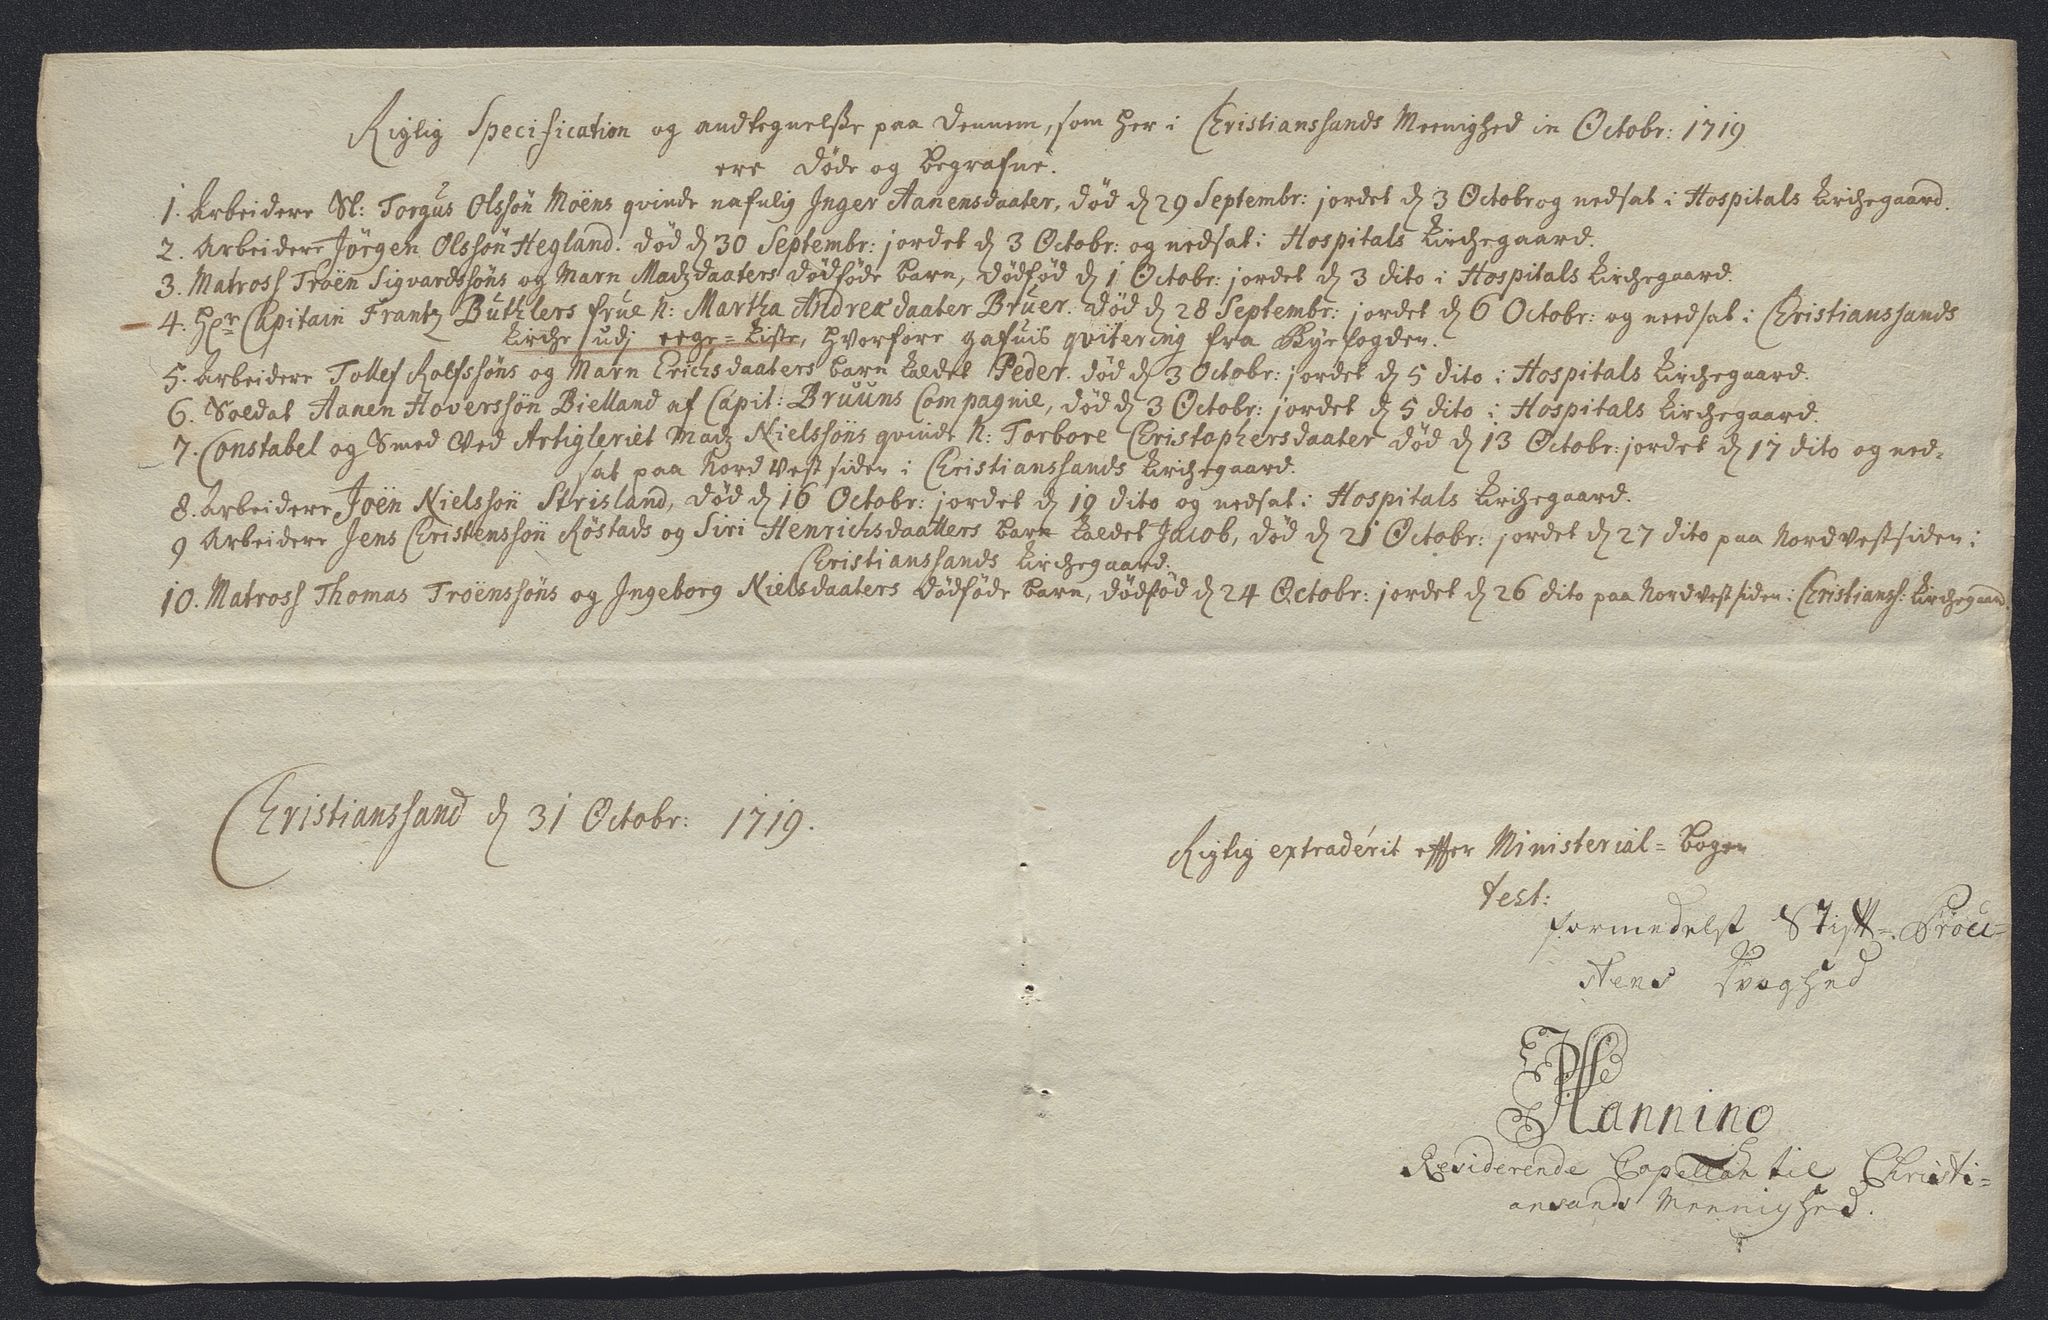 Rigtig Specification og andtegnelsse paa Dennem, som her i Christianssands Meenighed in Octobr: 1719
ere Døde og Begrafne.
1. Arbeidere Sl: Torgus Olssøn Moëns qvinde nafnlig Inger Aanensdaater, død d 29 Septembr: jordet d 3 Octobr og nedsat i Hospitals Kirchegaard.
2. Arbeidere Jörgen Olssøn Hegland. død d 30 Septembr: jordet d 3 Octobr: og nedsat i Hospitals Kirchegaard.
3. Matross Troën Sigvardssøns og Marn Madzdaaters dødføde Barn, dødfød d 1 Octobr: jordet d 3 dito i Hospitals Kirchegaard.
4. Hr Capitain Frantz Buthlers frue N: Martha Andreædaater Bruer. død d 28 Septembr: jordet d 6 Octobr: og needsat i Christianssands
Kirche udj eege=Kiste, hvorfore gafuis qvitering fra Byefogden.
5. Arbeidere Tollef Rolfssøns og Marn Erichsdaaters barn kaldet Peder. død d 3 Octobr: jordet d 5 dito i Hospitals Kirchegaard.
6. Soldat Aanen Hoverssøn Bielland af Capit: Bruuns Compagnie, død d 3 Octobr: jordet d 5 dito i Hospitals Kirchegaard.
7. Constabel og Smed Ved Artigleriet Madz Nielssøns qvinde N: Torbore Christophersdaater død d 13 Octobr: jordet d 17 dito og ned=
sat paa Nordvest siden i Christianssands Kirchegaard.
8. Arbeidere Joën Nielssøn Strisland, død d 16 Octobr: jordet d 19 dito og nedsat i Hospitals Kirchegaard.
9 Arbeidere Jens Christenssøn Røstads og Siri Henrichsdaatters barn kaldet Jacob, død d 21 Octobr: jordet d 27 dito paa Nordvestsiden i
Christianssands Kirchegaard.
10. Matross Thomas Troënssøns og Ingeborg Nielsdaaters dødføde barn, dødfød d 24 Octobr: jordet d 26 dito paa Nordvestsiden i Christianss: Kirchegaard.
Christianssand d 31 Octobr: 1719.
Rigtig extraderit effter Ministerial=Bogen
test:
formedelst Stift=Prou=
stens svaghed
Hannino
Residerende Capellan til Christi=
ansands Meenighed.